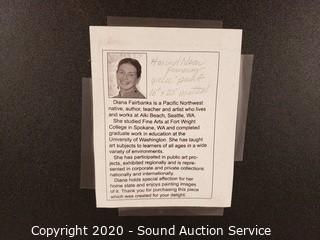 Diana Fairbanks is a Pacific Northwest
native, author, teacher and artist who lives
and works at Alki Beach, Seattle, WA.
She studied Fine Arts at Fort Wright
College in Spokane, WA and completed
graduate work in education at the
University of Washington. She has taught
art subjects to learners of all ages in a wide
variety of environments.
She has participated in public art pro-
jects, exhibited regionally and is repre-
sented in corporate and private collections
nationally and internationally.
Diana holds special affection for her
home state and enjoys painting images
of it. Thank you for purchasing this piece
which was created for your delight.
Copyright 2020 - Sound Auction Service